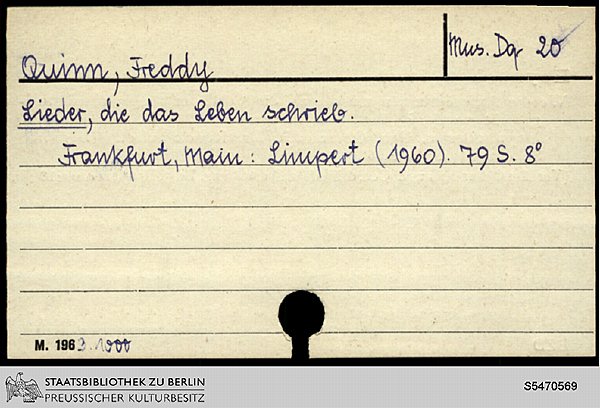 Mus. Dq 20
Quinn, Freddy
Lieder, die das Leben schrieb.
Frankfurt, Main: Limpert (1960). 79 S. 8°
M. 1963.1900
STAATSBIBLIOTHEK ZU BERLIN
PREUSSISCHER KULTURBESITZ
S5470569